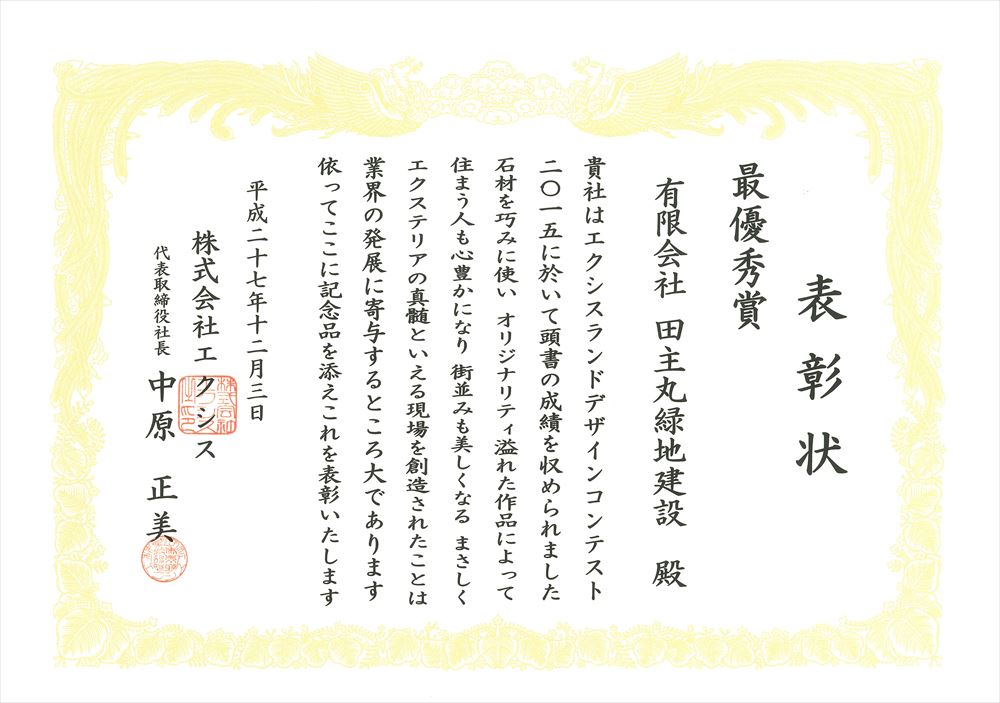 表彰状
最優秀賞
有限会社 田主丸緑地建設 殿
貴社はエクシスランドデザインコンテスト
二〇一五に於いて頭書の成績を収められました
石材を巧みに使い オリジナリティ溢れた作品によって
住まう人も心豊かになり 街並みも美しくなる まさしく
エクステリアの真髄といえる現場を創造されたことは
業界の発展に寄与するところ大であります
依ってここに記念品を添えこれを表彰いたします
平成二十七年十二月三日
株式会社エクシス
代表取締役社長 中原 正美